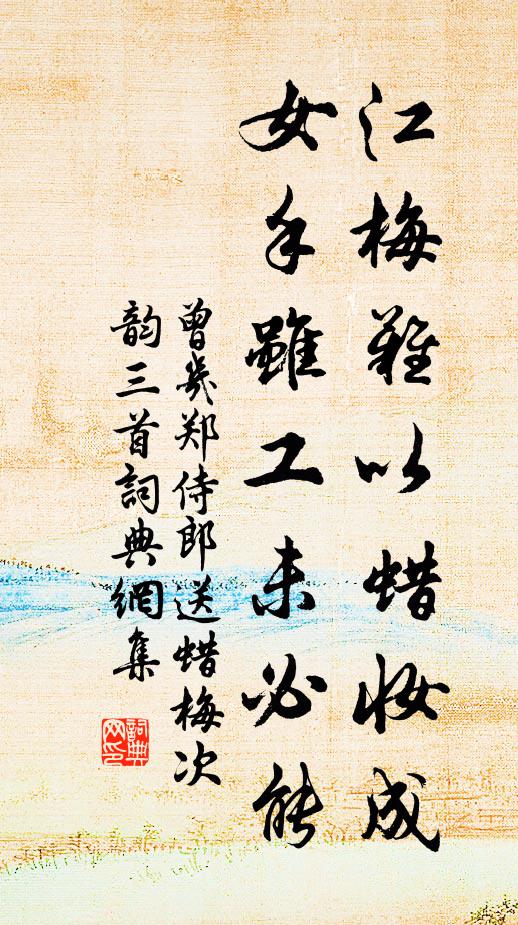 江梅难以蜡妆成
女手雖工未必能
曾幾郑侍郎送蜡梅次
韵三首詞典網集
詞典网印